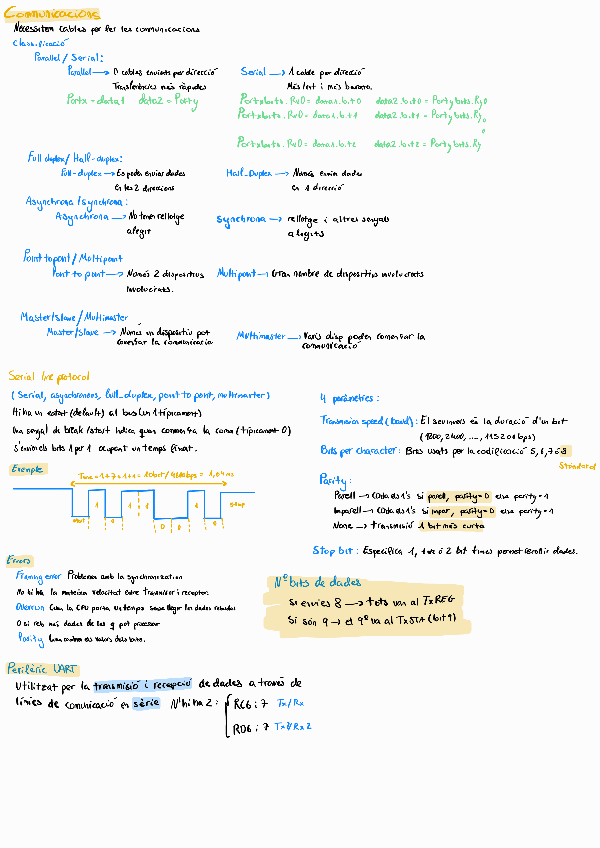 Communicacions
Necessitem cables per fer les comunicacions
Classificació
Parallel / Serial:
Parallel → n cables enviats per direcció
Transferències més ràpides
Portx = data1 data2 = Porty
Serial → 1 cable per direcció
Més lent i més barata.
Portxbits.Rx0 = data1.bit0 data2.bit0 = Portybits.Ry0
Portxbits.Rx0 = data1.bit1 data2.bit1 = Portybits.Ry0
Portxbits.Rx0 = data1.bit2 data2.bit2 = Portybits.Ry
Full duplex / Half-duplex:
Full-duplex → Es poden enviar dades
en les 2 direccions
Half-Duplex → Només envia dades
en 1 direcció
Asynchrona / synchrona:
Asynchrona → No tenen rellotge
afegit
Synchrona → rellotge i altres senyals
afegits
Point to point / Multipoint
Point to point → Només 2 dispositius
involucrats.
Multipoint → Gran nombre de dispositius involucrats
Master/slave / Multimaster
Master/slave → Només un dispositiu pot
començar la comunicació
Multimaster → Varis disp poden començar la
comunicació
Serial line protocol
(Serial, asynchronous, full-duplex, point to point, multimaster)
Hi ha un estat (default) al bus (un 1 típicament)
Una senyal de break/start indica quan comença la (típicament 0)
S'envien els bits 1 per 1 ocupant un temps fixat.
Exemple
Time = 1+7+1+1 = 10bit / 9600bps = 1,04ms
start 1 0 1 1 0 0 1 0 stop
4 paràmetres:
Transmission speed (baud): El seu invers és la duració d'un bit
(1200, 2400, ..., 115200 bps)
Bits per character: Bits usats per la codificació 5, 6, 7 o 8
Standard
Parity:
Parell → Cada es 1's si parell, parity=0 else parity=1
Imparell → Cada es 1's si impar, parity=0 else parity=1
None → transmissió 1 bit més curta
Stop bit: Especifica 1, 1 o 2 bit times
Errors
Framing error Problemes amb la synchronization
No hi ha la mateixa velocitat entre transmissor i receptor.
Overrun Quan la CPU
O si reb més dades de les q pot processar
Parity
Nº bits de dades
Si envies 8 → tots van al TxREG
Si són 9 → el 9º va al TxSTA (bit 9)
Perifèric UART
Utilitzat per la transmissió i recepció de dades a través de
línies de comunicació en sèrie N'hi ha 2:
RC6 i 7 Tx/Rx
RD6 i 7 Tx2/Rx2